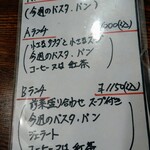 (今週のパスタ.パン
Aランチ ¥1000(込)
小さなサラダと小さなスープ
(今週のパスタ.パン
コーヒー又は紅茶
Bランチ ¥1150(込)
野菜盛り合わせ スープ付き
(今週のパスタ.パン
ジェラート
コーヒー又は紅茶